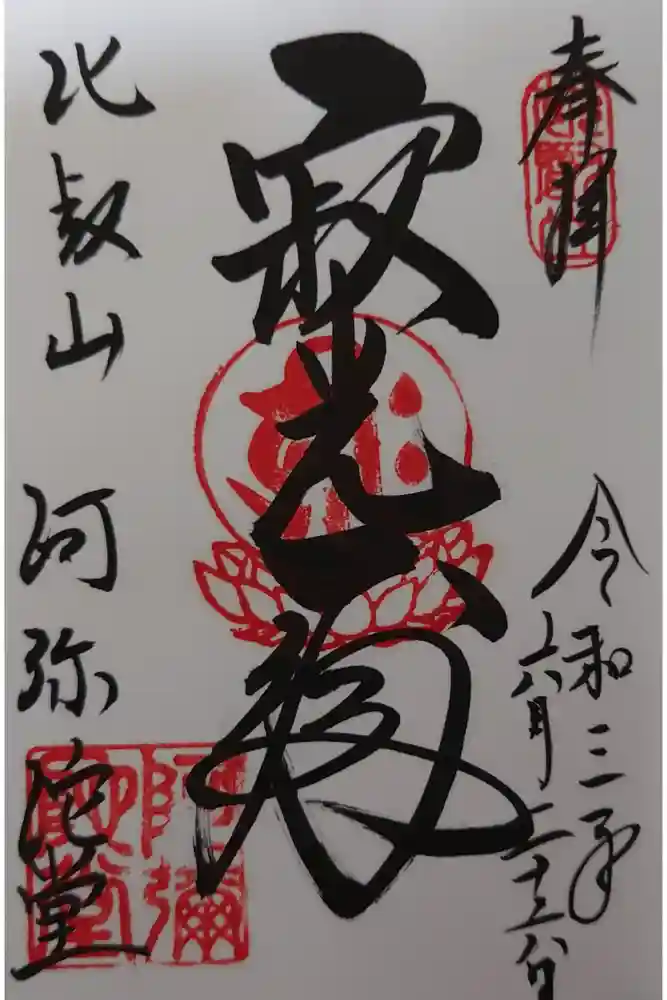 奉拝
令和三年
六月二十三日
寂光
比叡山 阿弥陀堂
阿彌
陀堂